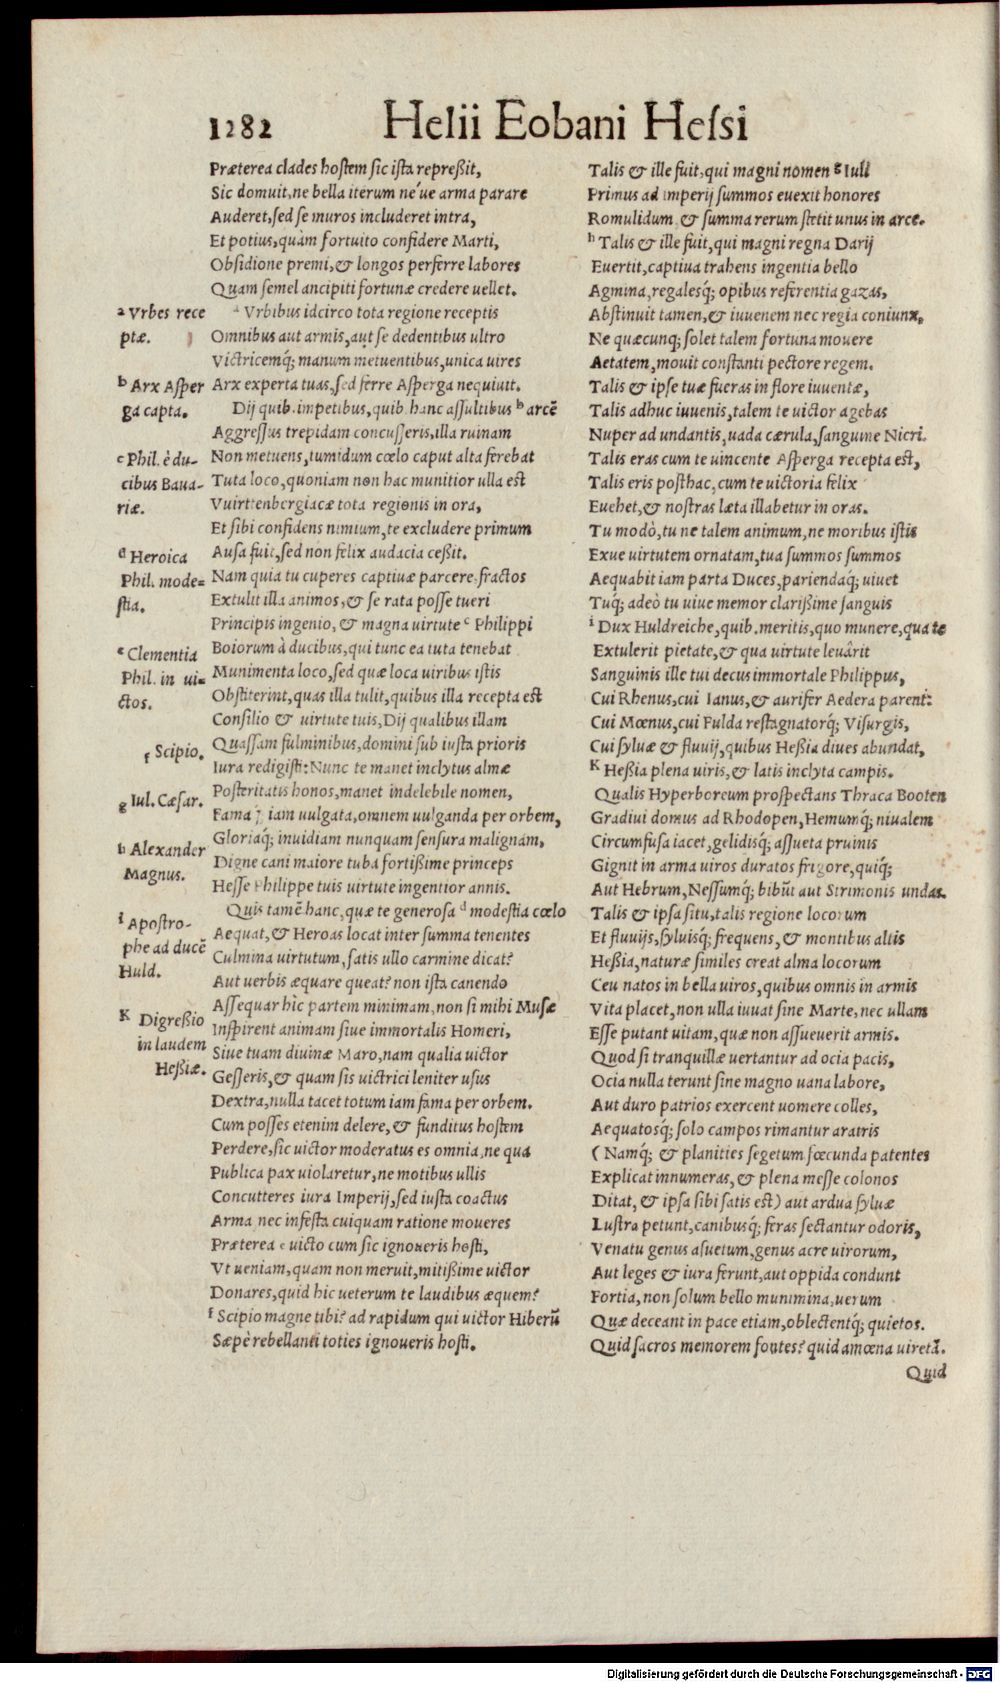 1282 Helii Eobani Heſsi
Præterea clades hoſtem ſic iſta repreßit,
Sic domuit, ne bella iterum ne'ue arma parare
Auderet, ſed ſe muros includeret intra,
Et potius, quàm fortuito confidere Marti,
Obſidione premi, & longos perferre labores
Quam ſemel ancipiti fortunæ credere uellet.
a Vrbibus idcirco tota regione receptis
Omnibus aut armis, aut ſe dedentibus ultro
Victricemq́; manum metuentibus, unica uires
Arx experta tuas, ſed ferre Aſperga nequiuit.
Dij quib. impetibus, quib. hanc aſſultibus b arcē
Aggreſſus trepidam concuſſeris, illa ruinam
Non metuens, tumidum cœlo caput alta ferebat
Tuta loco, quoniam non hac munitior ulla eſt
Vuirttenbergiacæ tota regionis in ora,
Et ſibi confidens nimium, te excludere primum
Auſa fuit, ſed non felix audacia ceßit.
Nam quia tu cuperes captiuæ parcere, fractos
Extulit illa animos, & ſe rata poſſe tueri
Principis ingenio, & magna uirtute c Philippi
Boiorum à ducibus, qui tunc ea tuta tenebat
Munimenta loco, ſed quæ loca uiribus iſtis
Obſtiterint, quas illa tulit, quibus illa recepta eſt
Conſilio & uirtute tuis, Dij qualibus illam
Quaſſam fulminibus, domini ſub iuſta prioris
Iura redigiſti: Nunc te manet inclytus almæ
Poſteritatis honos, manet indelebile nomen,
Fama iam uulgata, omnem uulganda per orbem,
Gloriaq́; inuidiam nunquam ſenſura malignam,
Digne cani maiore tuba fortißime princeps
Heſſe Philippe tuis uirtute ingentior annis.
Quis tamē hanc, quæ te generoſa d modeſtia cœlo
Aequat, & Heroas locat inter ſumma tenentes
Culmina uirtutum, ſatis ullo carmine dicat?
Aut uerbis æquare queat? non iſta canendo
Aſſequar hîc partem minimam, non ſi mihi Muſæ
Inſpirent animam ſiue immortalis Homeri,
Siue tuam diuinæ Maro, nam qualia uictor
Geſſeris, & quam ſis uictrici leniter uſus
Dextra, nulla tacet totum iam fama per orbem.
Cum poſſes etenim delere, & funditus hoſtem
Perdere, ſic uictor moderatus es omnia, ne qua
Publica pax uiolaretur, ne motibus ullis
Concutteres iura Imperij, ſed iuſta coactus
Arma nec infeſta cuiquam ratione moueres
Præterea e uicto cum ſic ignoueris hoſti,
Vt ueniam, quam non meruit, mitißime uictor
Donares, quid hic ueterum te laudibus æquem?
f Scipio magne tibi? ad rapidum qui uictor Hiberū
Sæpè rebellanti toties ignoueris hoſti.
a Vrbes rece
ptæ.
b Arx Aſper
ga capta.
c Phil. è du-
cibus Baua-
riæ.
d Heroica
Phil. mode=
ſtia.
e Clementia
Phil. in ui=
ctos.
f Scipio.
g Iul. Cæſar.
h Alexander
Magnus.
i Apoſtro-
phe ad ducē
Huld.
K Digreßio
in laudem
Heßiæ.
Talis & ille fuit, qui magni nomen g Iuli
Primus ad imperij ſummos euexit honores
Romulidum & ſumma rerum ſtetit unus in arce.
h Talis & ille fuit, qui magni regna Darij
Euertit, captiua trahens ingentia bello
Agmina, regaleſq́; opibus referentia gazas,
Abſtinuit tamen, & iuuenem nec regia coniunx,
Ne quæcunq́; ſolet talem fortuna mouere
Aetatem, mouit conſtanti pectore regem.
Talis & ipſe tuæ fueras in flore iuuentæ,
Talis adhuc iuuenis, talem te uictor agebas
Nuper ad undantis, uada cærula, ſanguine Nicri.
Talis eras cum te uincente Aſperga recepta eſt,
Talis eris poſthac, cum te uictoria felix
Euehet, & noſtras læta illabetur in oras.
Tu modò, tu ne talem animum, ne moribus iſtis
Exue uirtutem ornatam, tua ſummos ſummos
Aequabit iam parta Duces, pariendaq́; uiuet
Tuq́; adeò tu uiue memor clarißime ſanguis
i Dux Huldreiche, quib. meritis, quo munere, qua te
Extulerit pietate, & qua uirtute leuârit
Sanguinis ille tui decus immortale Philippus,
Cui Rhenus, cui Ianus, & aurifer Aedera parent:
Cui Mœnus, cui Fulda reſtagnatorq́; Viſurgis,
Cui ſyluæ & fluuij, quibus Heßia diues abundat,
K Heßia plena uiris, & latis inclyta campis.
Qualis Hyperboreum proſpectans Thraca Booten
Gradiui domus ad Rhodopen, Hemumq́; niualem
Circumfuſa iacet, gelidiſq́; aſſueta pruinis
Gignit in arma uiros duratos frigore, quiq́;
Aut Hebrum, Neſſumq́; bibūt aut Strimonis undas.
Talis & ipſa ſitu, talis regione locorum
Et fluuijs, ſyluiſq́; frequens, & montibus altis
Heßia, naturæ ſimiles creat alma locorum
Ceu natos in bella uiros, quibus omnis in armis
Vita placet, non ulla iuuat ſine Marte, nec ullam
Eſſe putant uitam, quæ non aſſueuerit armis.
Quod ſi tranquillæ uertantur ad ocia pacis,
Ocia nulla terunt ſine magno uana labore,
Aut duro patrios exercent uomere colles,
Aequatoſq́; ſolo campos rimantur aratris
( Namq́; & planities ſegetum fœcunda patentes
Explicat innumeras, & plena meſſe colonos
Ditat, & ipſa ſibi ſatis eſt) aut ardua ſyluæ
Luſtra petunt, canibuſq́; feras ſectantur odoris,
Venatu genus aſuetum, genus acre uirorum,
Aut leges & iura ferunt, aut oppida condunt
Fortia, non ſolum bello munimina, uerum
Quæ deceant in pace etiam, oblectentq́; quietos.
Quid ſacros memorem fontes? quid amœna uireta.
Quid
Digitalisierung gefördert durch die Deutsche Forschungsgemeinschaft - DFG